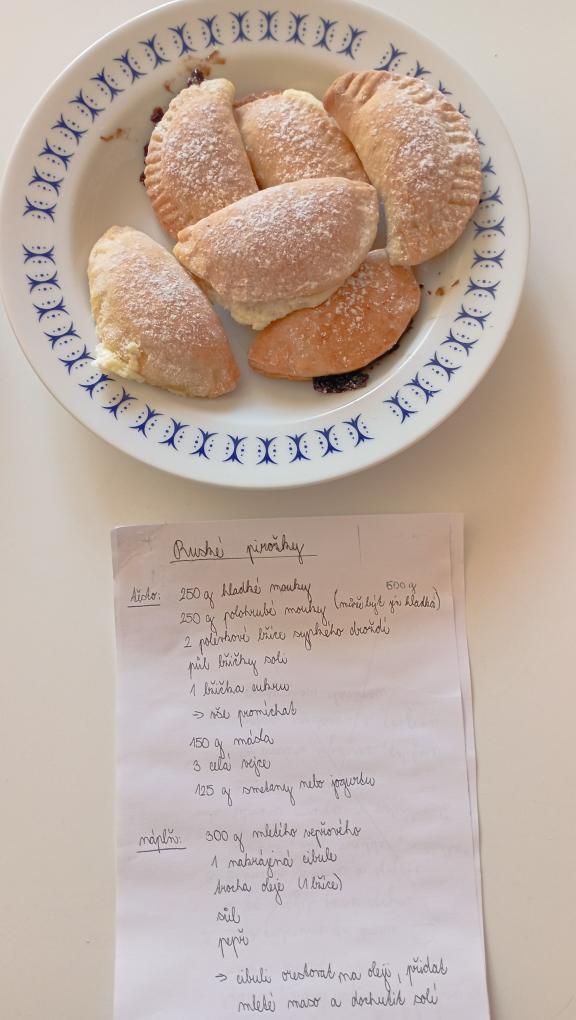 Ruské pirožky
těsto: 250 g hladké mouky
500 g
250 g polohrubé mouky (může být jn hladká)
2 polévkové lžíce sypkého droždí
půl lžičky soli
1 lžička cukru
⇒ vše promíchat
150 g másla
3 celá vejce
125 g smetany nebo jogurtu
náplň: 300 g mletého vepřového
1 nakrájená cibule
trocha oleje (1 lžíce)
sůl
pepř
⇒ cibuli orestovat na oleji, přidat
mleté maso a dochutit solí